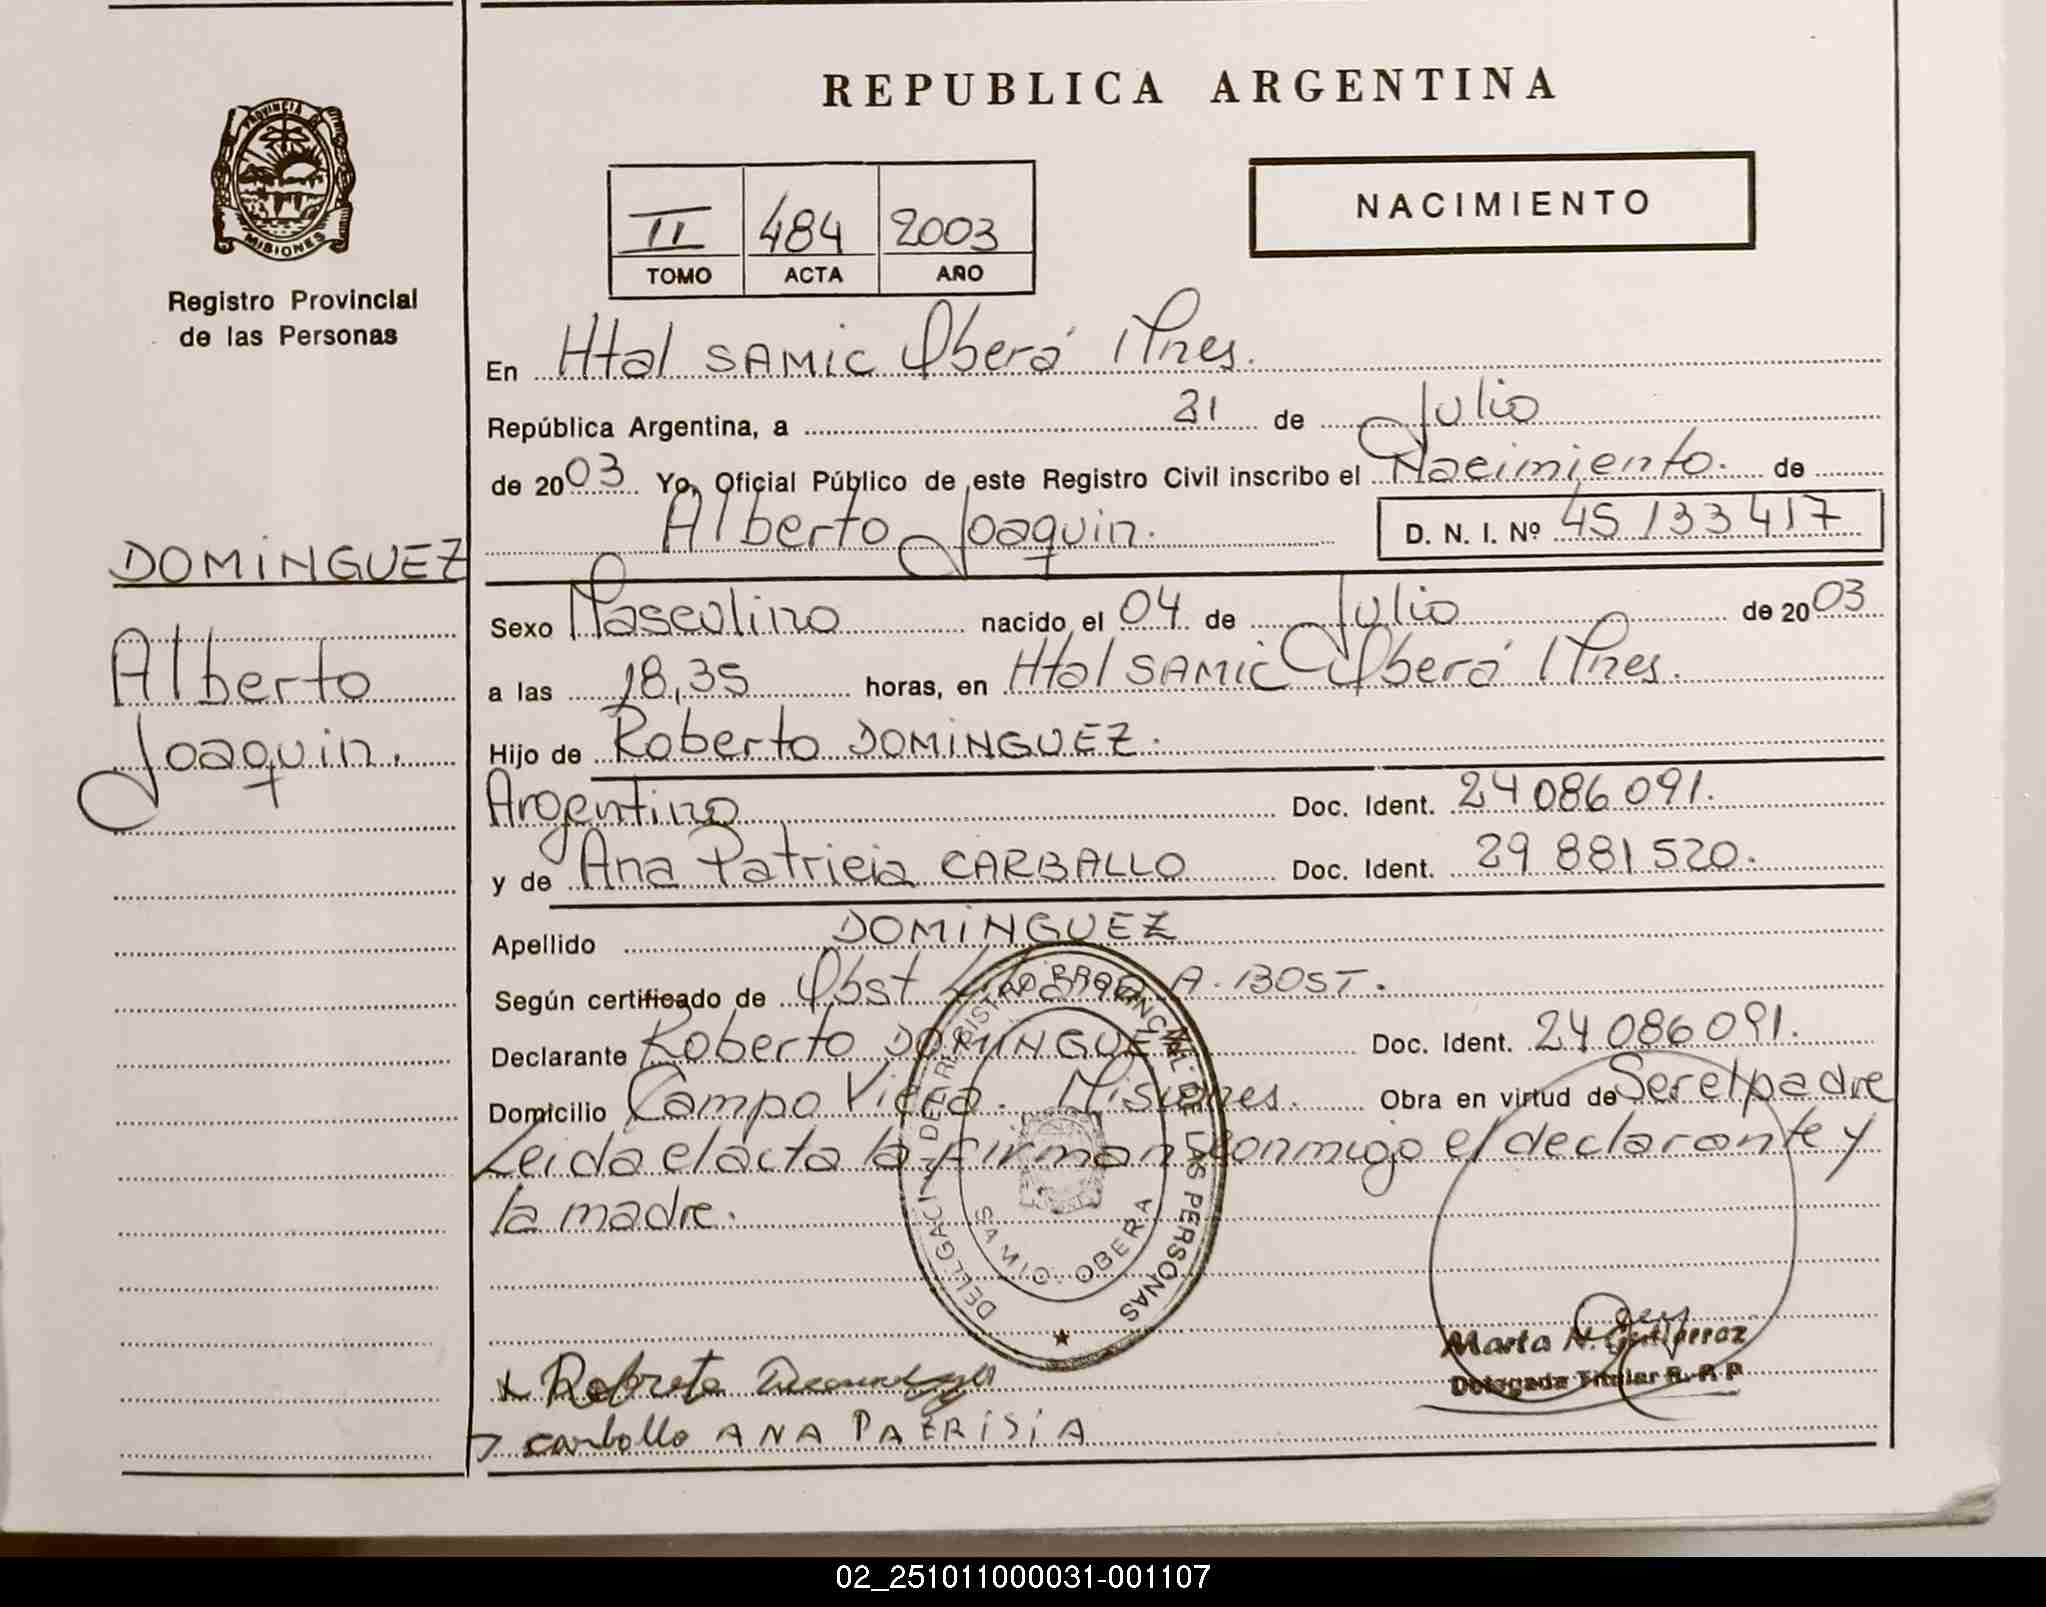 REPUBLICA ARGENTINA
PROVINCIA DE
MISIONES
Registro Provincial
de las Personas
II 484 2003
TOMO ACTA AÑO
NACIMIENTO
En Htal SAMIC Oberá Mnes.
República Argentina, a 21 de Julio
de 2003 Yo, Oficial Público de este Registro Civil inscribo el Nacimiento. de
Alberto Joaquin. D. N. I. Nº 45133417
DOMINGUEZ
Alberto
Joaquin.
Sexo Masculino nacido el 04 de Julio de 2003
a las 18,35 horas, en Htal SAMIC Oberá Mnes.
Hijo de Roberto DOMINGUEZ.
Argentino Doc. Ident. 24 086 091.
y de Ana Patricia CARBALLO Doc. Ident. 29 881 520.
Apellido DOMINGUEZ
Según certificado de Obst A. BOST.
Declarante Roberto DOMINGUEZ Doc. Ident. 24 086 091.
Domicilio Campo Viera. Misiones. Obra en virtud de Ser el padre
Leida el acta la firman conmigo el declarante y
la madre.
DELEGACI DEL REGISTRO PROVINCIAL DE LAS PERSONAS
SAMIC. OBERA
Marta N. Gutierrez
Delegada Titular R.P.P
Roberto
carballo ANA PATRISIA
02_251011000031-001107